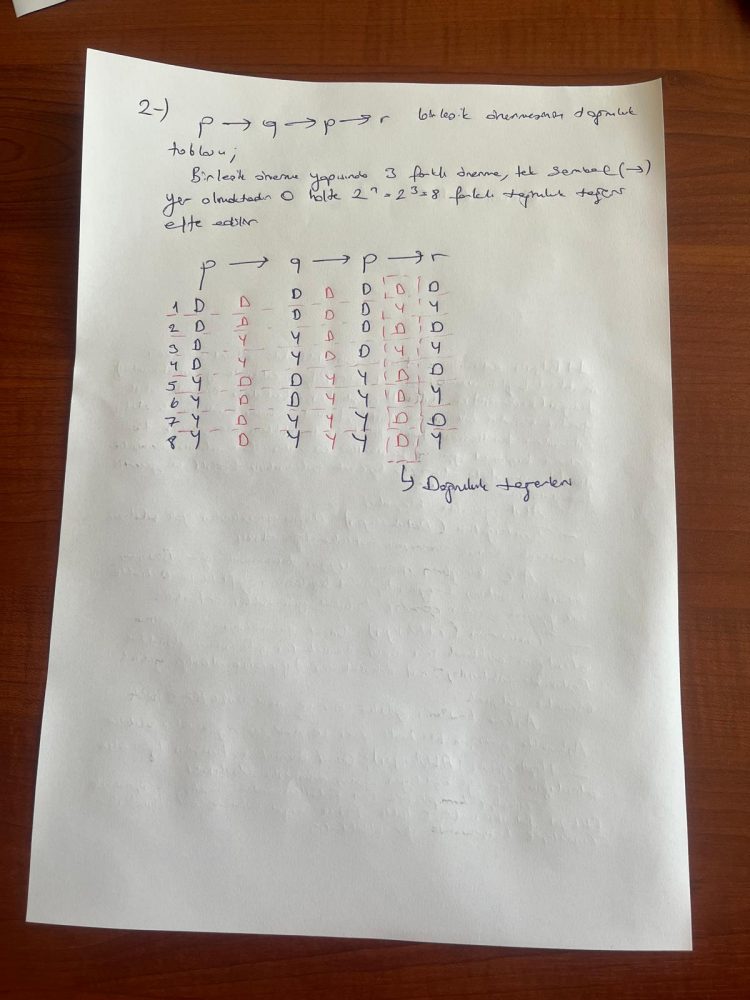 2-) p → q → p → r birleşik önermesinin doğruluk
tablosu;
Birleşik önerme yapısında 3 farklı önerme, tek sembol (→)
yer almaktadır O halde 2ⁿ = 2³ = 8 farklı doğruluk değeri
elde edilir
p → q → p → r
1 D D D D D D D
2 D D D D D Y Y
3 D Y Y D D D D
4 D Y Y D D Y Y
5 Y D D Y Y D D
6 Y D D Y Y D Y
7 Y D Y Y Y D D
8 Y D Y Y Y D Y
↳ Doğruluk değerleri